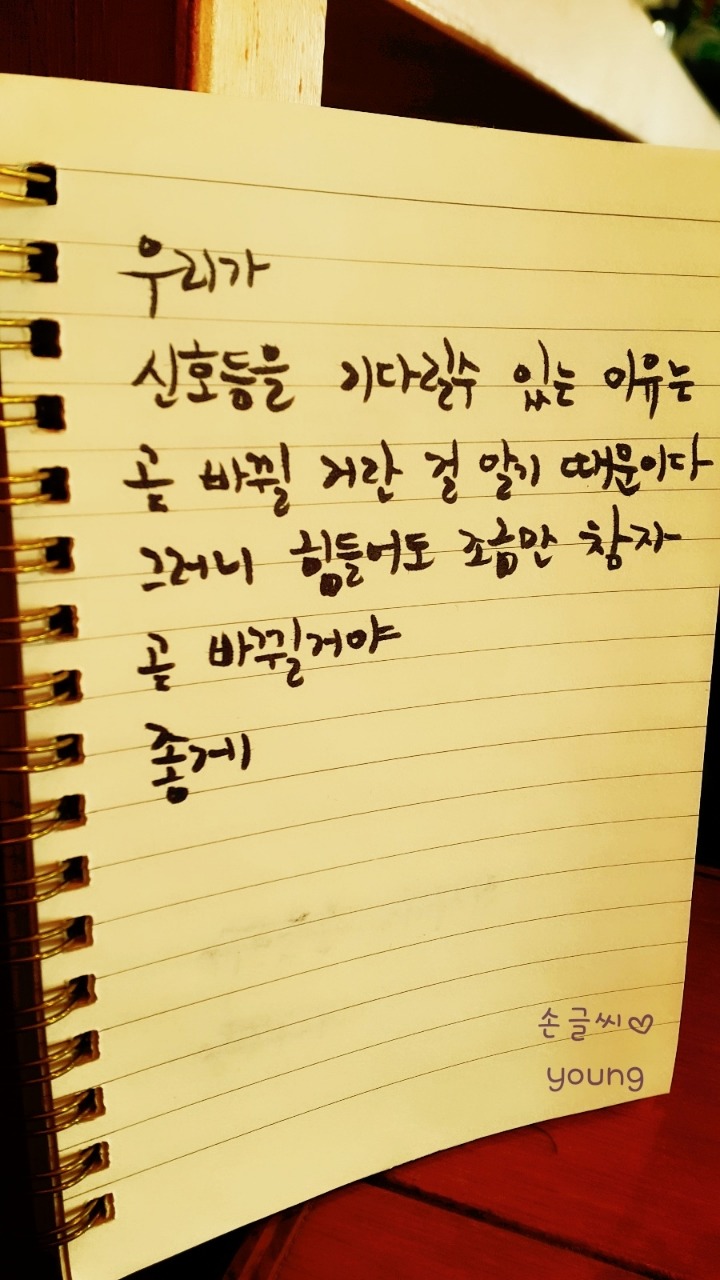 우리가
신호등을 기다릴수 있는 이유는
곧 바뀔 거란 걸 알기 때문이다
그러니 힘들어도 조금만 참자
곧 바뀔거야
좋게
손글씨♡
young